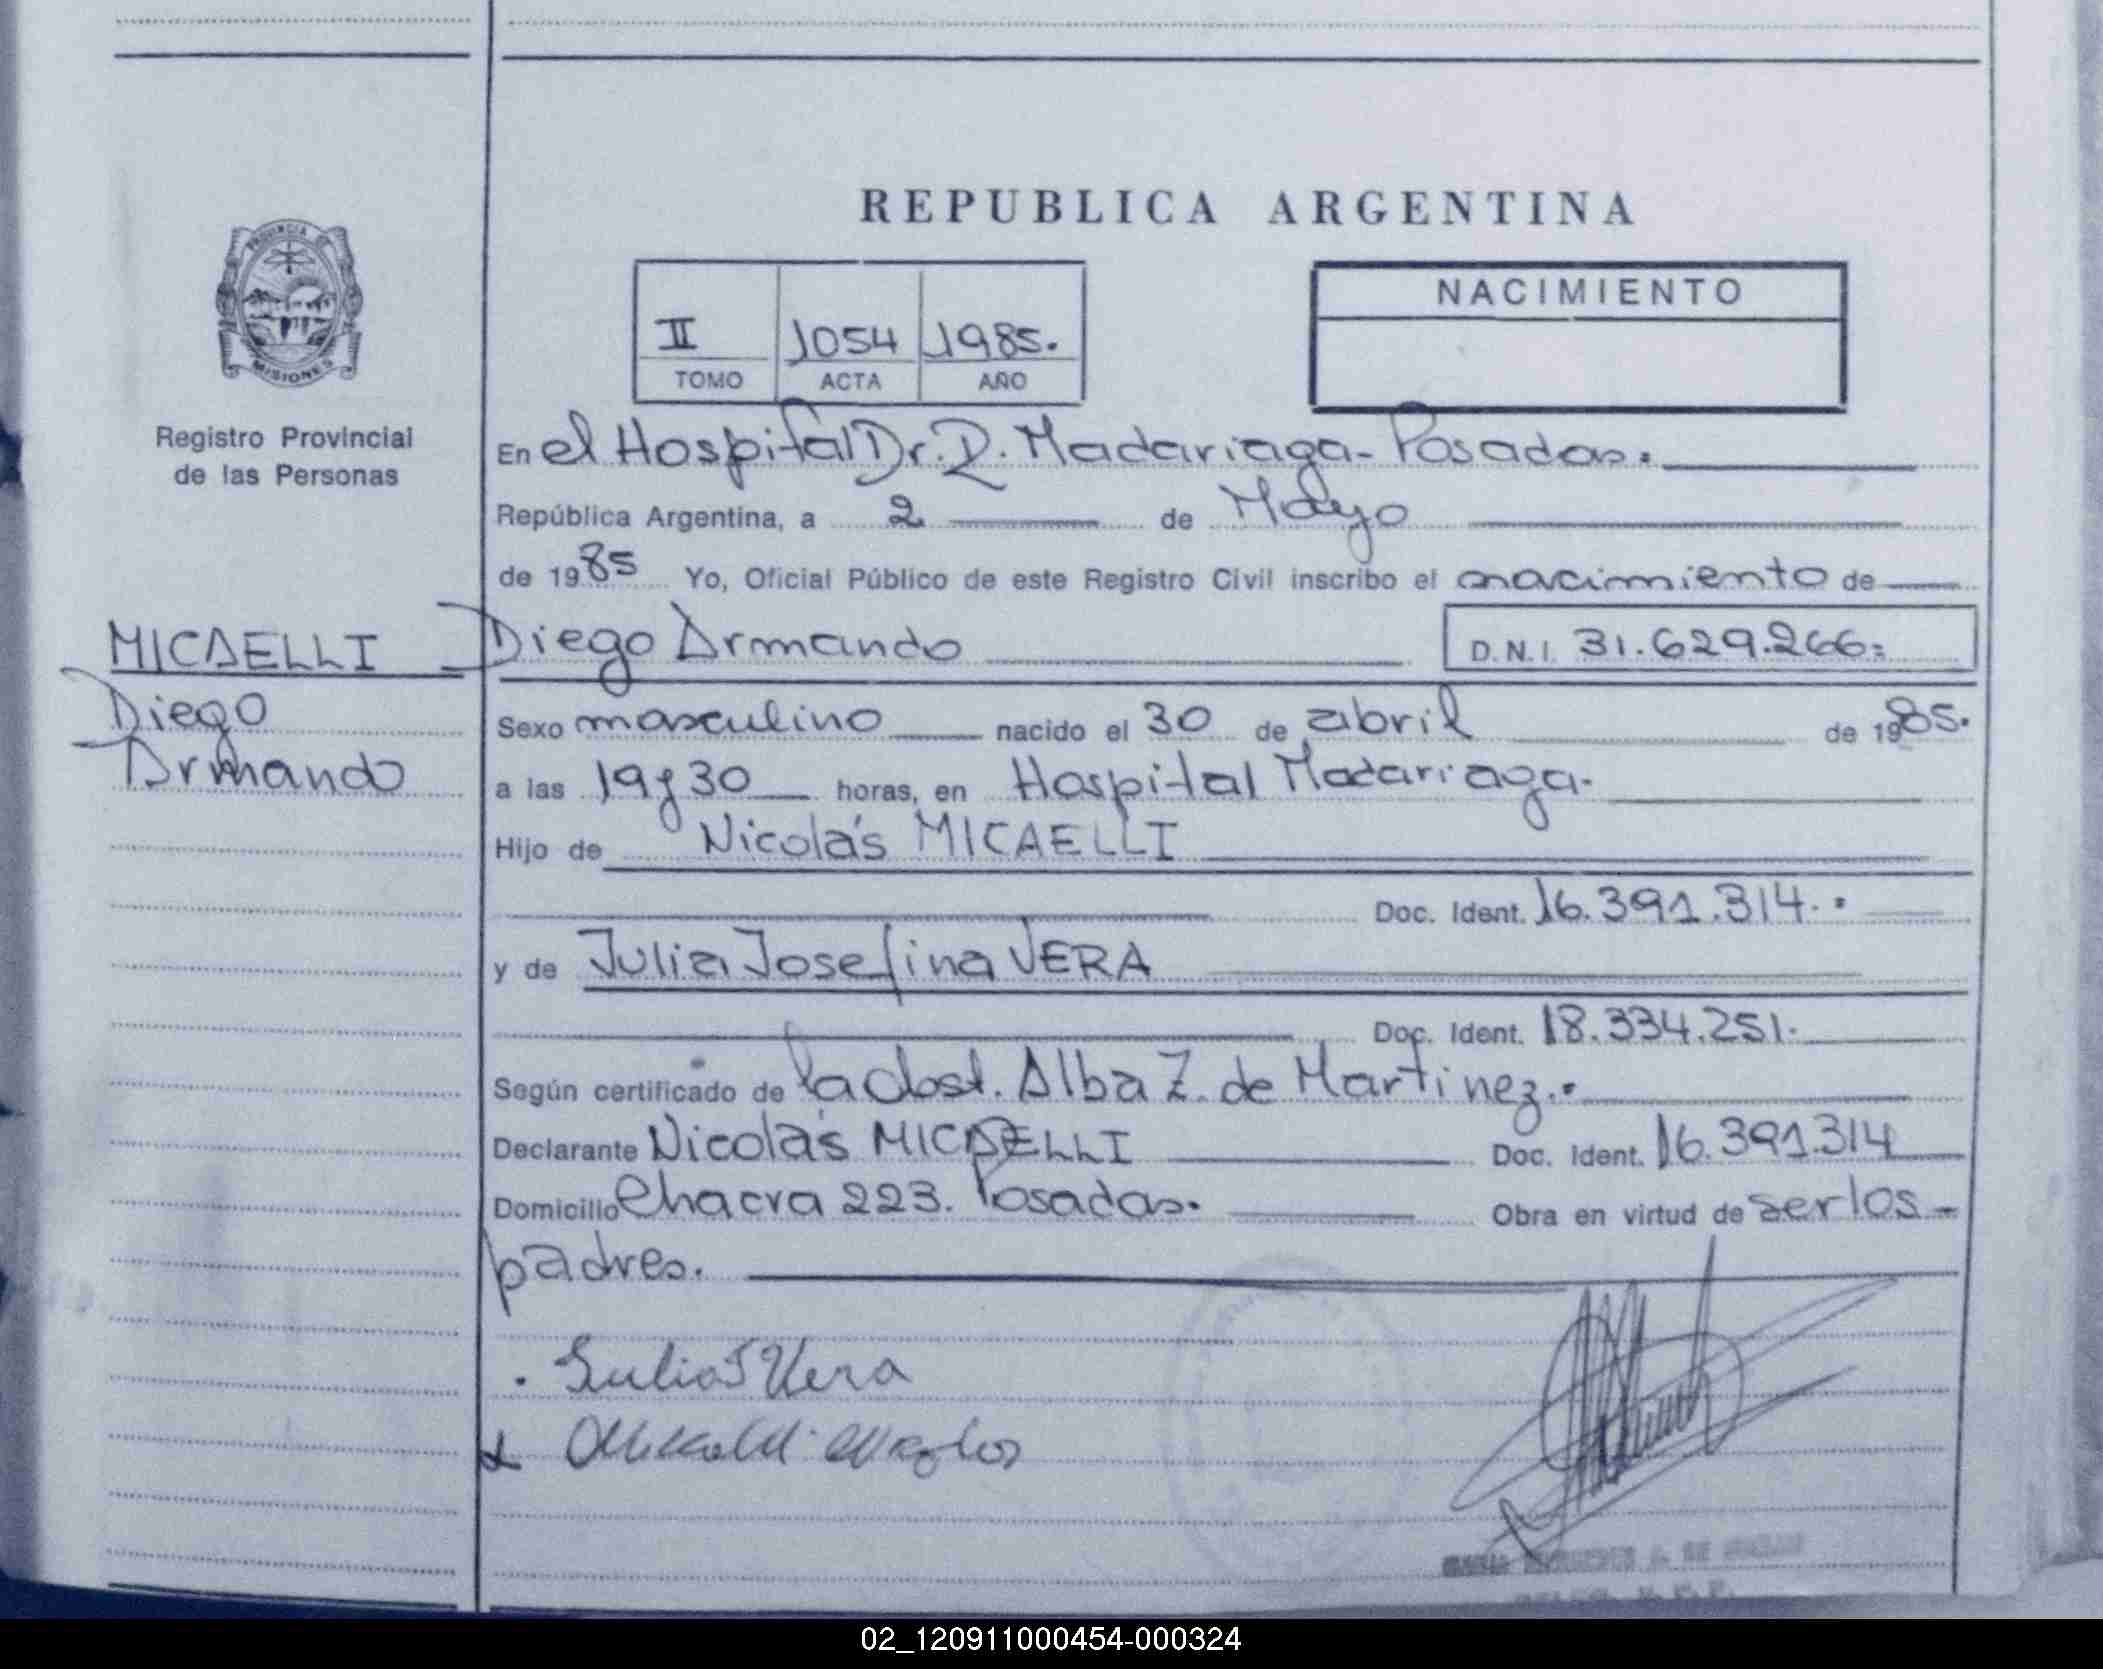 REPUBLICA ARGENTINA
PROVINCIA DE
MISIONES
Registro Provincial
de las Personas
II 1054 1985.
TOMO ACTA AÑO
NACIMIENTO
En el Hospital Dr. R. Madariaga - Posadas.
República Argentina, a 2 de Mayo
de 1985 Yo, Oficial Público de este Registro Civil inscribo el nacimiento de
MICAELLI
Diego
Armando
Diego Armando D.N.I. 31.629.266.
Sexo masculino nacido el 30 de abril de 1985.
a las 19 y 30 horas, en Hospital Madariaga.
Hijo de Nicolás MICAELLI
Doc. Ident. 16.391.314.
y de Julia Josefina VERA
Doc. Ident. 18.334.251.
Según certificado de la Obst. Alba Z. de Martinez.
Declarante Nicolás MICAELLI Doc. Ident. 16.391.314
Domicilio Chacra 223. Posadas. Obra en virtud de ser los
padres.
Julia J Vera
02_120911000454-000324